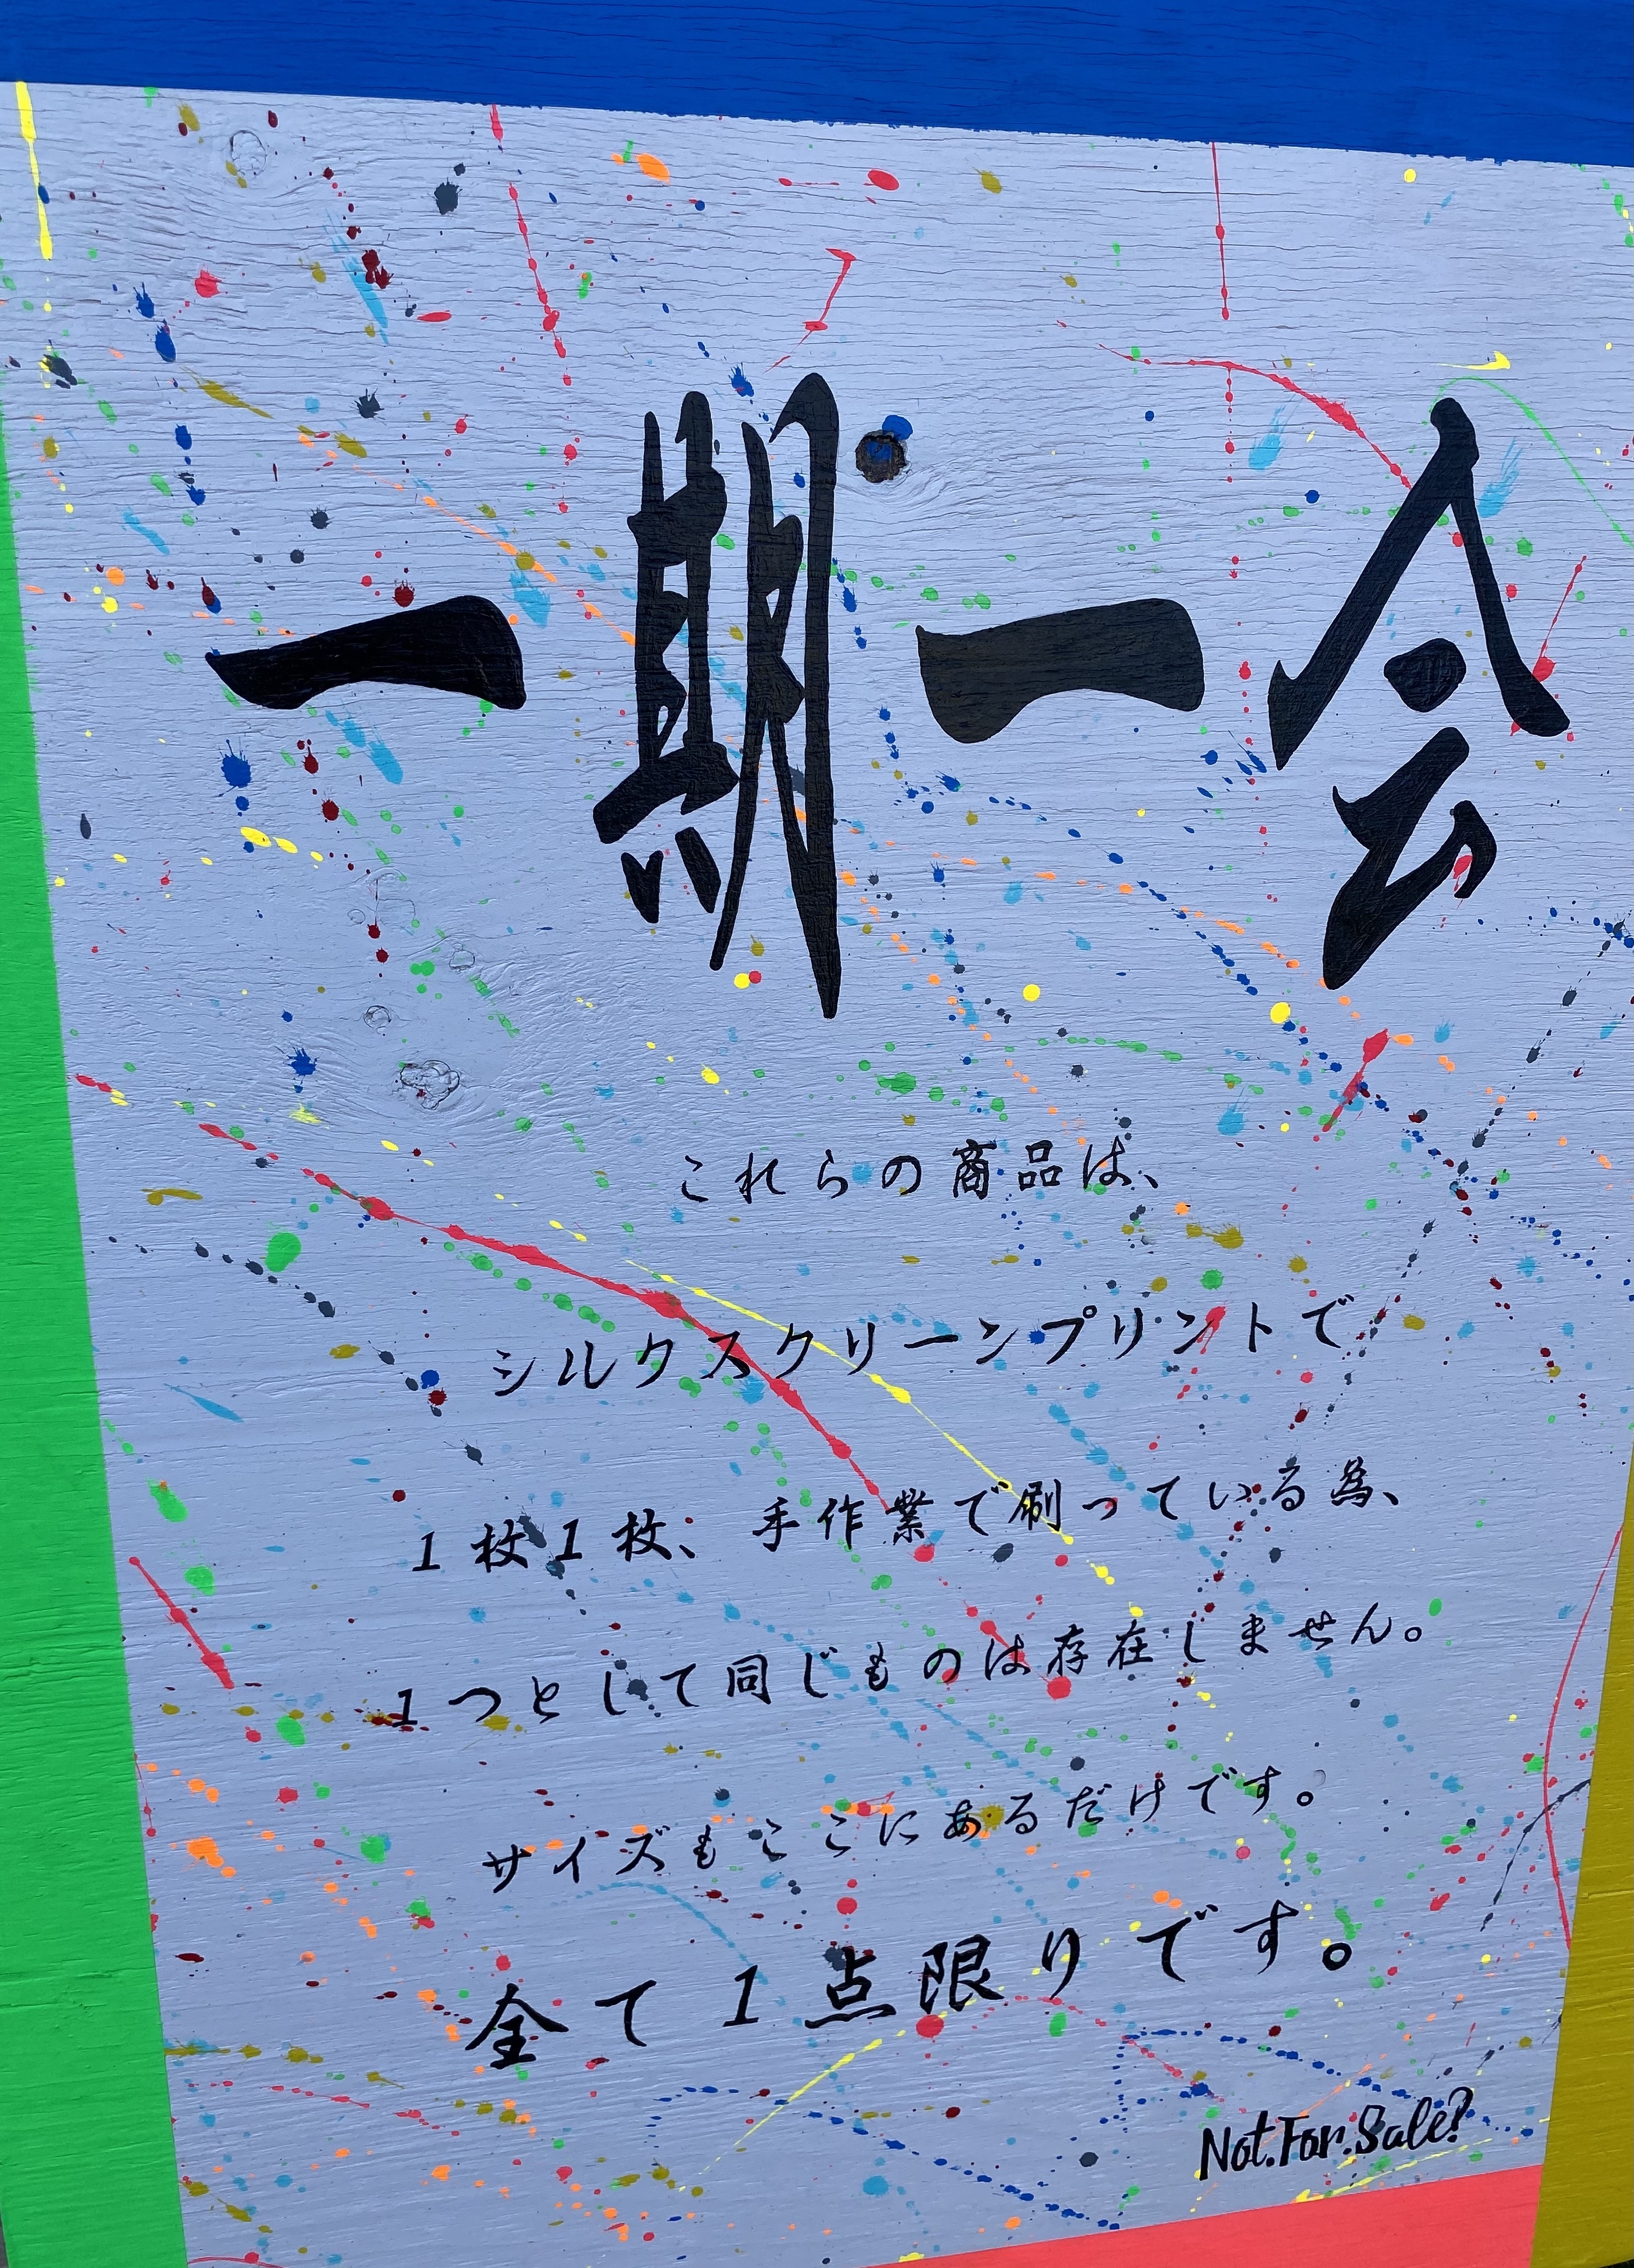 一期一会
これらの商品は、
シルクスクリーンプリントで
1枚1枚、手作業で刷っている為、
1つとして同じものは存在しません。
サイズもここにあるだけです。
全て1点限りです。
Not.For.Sale?